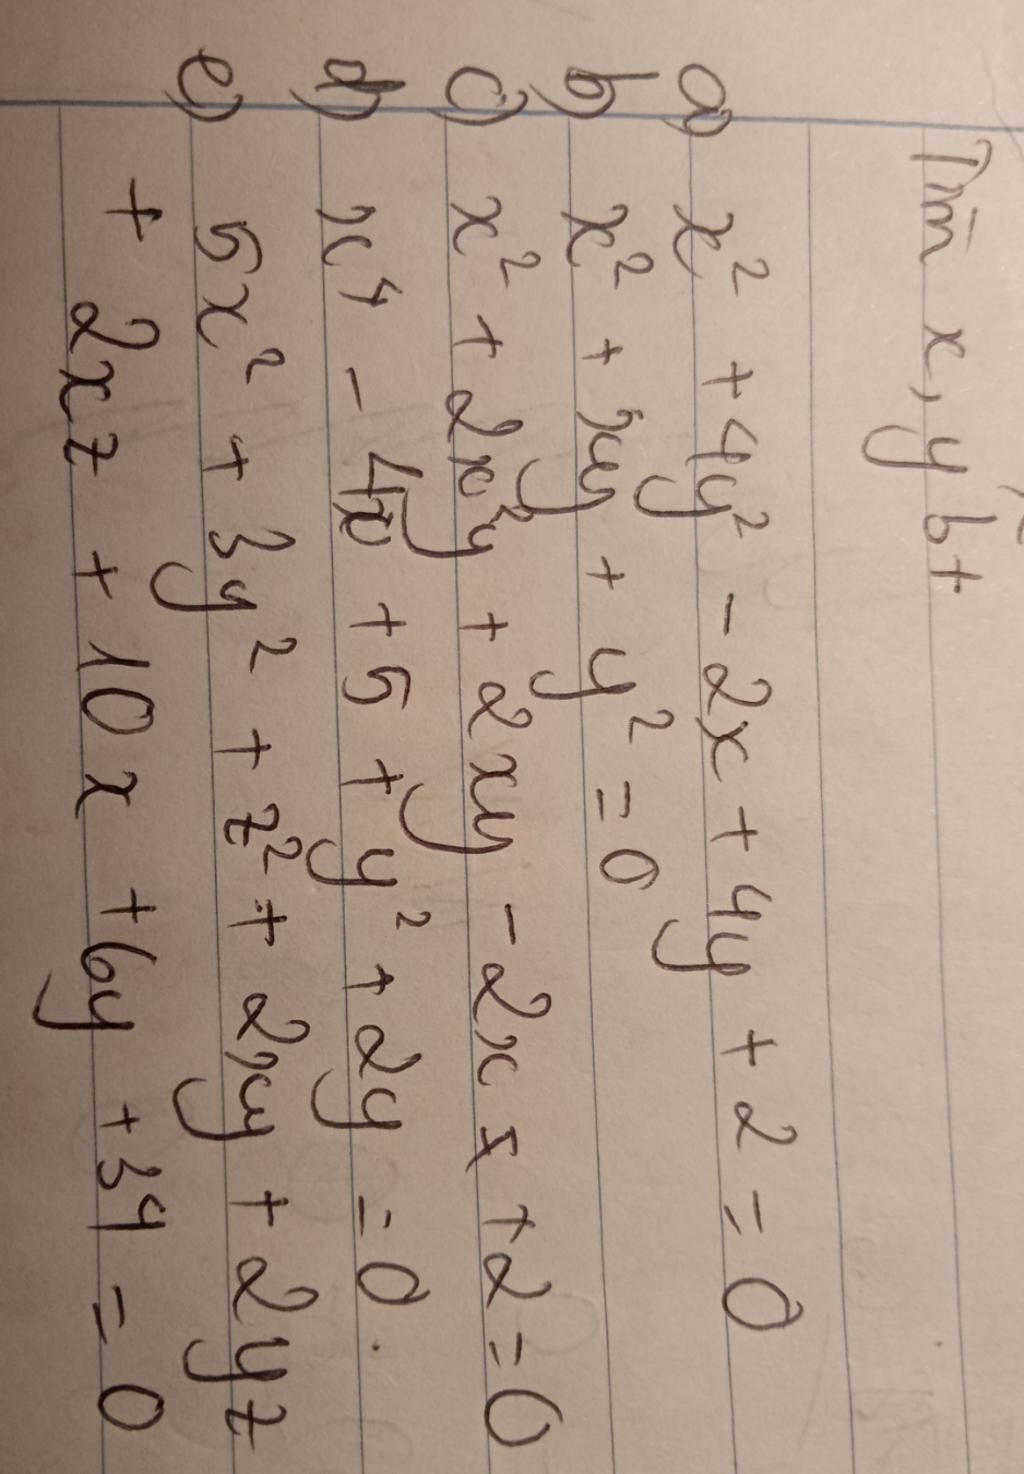 Tìm x, y bt
a) x² + 4y² - 2x + 4y + 2 = 0
b) x² + xy + y² = 0
c) x² + 2y² + 2xy - 2x + 2 = 0
d) x⁴ - 4x + 5 + y² + 2y = 0.
e) 5x² + 3y² + z² + 2xy + 2yz
+ 2xz + 10x + 6y + 34 = 0